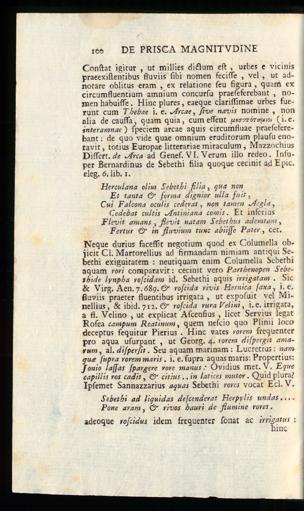 100 DE PRISCA MAGNITVDINE
Constat igitur, ut millies dictum est, urbes e vicinis
praeexistentibus fluviis sibi nomen fecisse, vel, ut ad-
notare oblitus eram, ex relatione seu figura, quam ex
circumfluentium amnium concursu praeseferebant, no-
men habuisse. Hinc plures, eaeque clarissimae urbes fue-
runt cum Thebae i. e. Arcae, sive navis nomine, non
alia de caussa, quam quia, cum essent (i. e.
interamnae) speciem arcae aquis circumfluae praesefere-
bant: de quo vide quae omnium eruditorum plausu eno-
tavit, totius Europae litterariae miraculum, Mazzochius
Dissert. de Arca ad Genes. VI. Verum illo redeo. Insu-
per Bernardinus de Sebethi filia quoque cecinit ad Epic.
eleg. 6. lib. 1.
Herculana olim Sebethi filia, qua non
Et tanta & forma dignior ulla fuit,
Cui Falcona oculis cederat, non tantum Aegla,
Cedebat cultis Antiniana comis. Et inferius
Flevit amans, flevit natam Sebethus ademtam,
Fertur & in fluvium tunc abiisse Pater, cet.
Neque durius facessit negotium quod ex Columella ob-
jicit Cl. Martorellius ad firmandam nimiam antiqui Se-
bethi exiguitatem: neutiquam enim Columella Sebethi
aquam rori comparavit: cecinit vero Parthenopen Sebe-
thide lympha roscidam id. Sebethi aquis irrigatam. Sic
& Virg. Aen. 7. 689. & roscida rivis Hernica saxa, i. e.
fluviis praeter fluentibus irrigata, ut exposuit vel Mi-
nellius, & ibid. 712. & roscida rura Velini, i. e. irrigata,
a fl. Velino, ut explicat Ascensius, licet Servius legat
Rosea campum Reatinum, quem nescio quo Plinii loco
deceptus sequitur Pierius. Hinc vates rorem frequenter
pro aqua usurpant, ut Georg. 4. rorem dispergit ama-
rum, al. dispersit. Seu aquam marinam: Lucretius: nam
quae supra rorem maris: i. e. supra aquas maris: Propertius:
Jonio lassas spargere rore manus: Ovidius met. V. Eque
capillis ros cadit, & citius.. in latices mutor. Quid plura?
Ipsemet Sannazzarius aquas Sebethi rores vocat Ecl. V.
Sebethi ad liquidas descenderat Herpylis undas....
Pone aram, & rivos hauri de flumine rores.
adeoque roscidus idem frequenter sonat ac irrigatus:
hinc